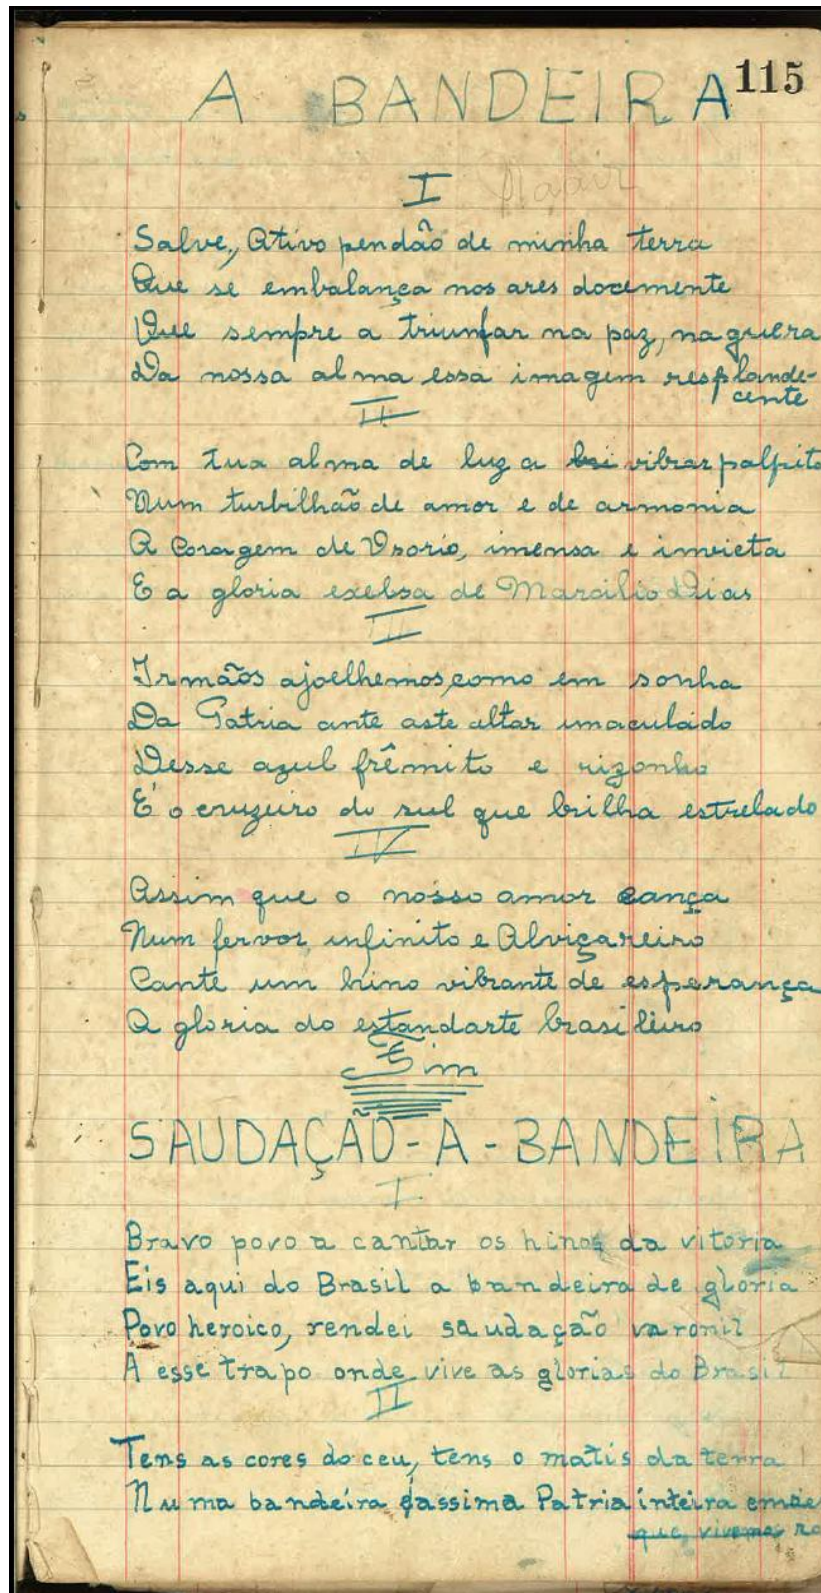 115
A BANDEIRA
I
Salve, Ativo pendão de minha terra
Que se embalança nos ares docemente
Que sempre a triunfar na paz, na guera
Da nossa alma essa imagem resplande-
cente
II
Com tua alma de luz a vibrar palpita
Num turbilhão de amor e de armonia
A Coragem de Osorio, imensa e invicta
E a gloria exelsa de Marcilio Dias
III
Irmãos ajoelhemos, como em sonha
Da Patria ante aste altar imaculado
Desse azul frêmito e rizonho
É o cruzeiro do sul que brilha estrelado
IV
Assim que o nosso amor cança
Num fervor infinito e Alviçareiro
Cante um hino vibrante de esperança
A gloria do estandarte brasileiro
Fim
SAUDAÇÃO-A-BANDEIRA
I
Bravo povo a cantar os hinos da vitoria
Eis aqui do Brasil a bandeira de gloria
Povo heroico, rendei saudação varonil
A esse trapo onde vive as glorias do Brasil
II
Tens as cores do ceu, tens o matis da terra
Numa bandeira assima Patria inteira